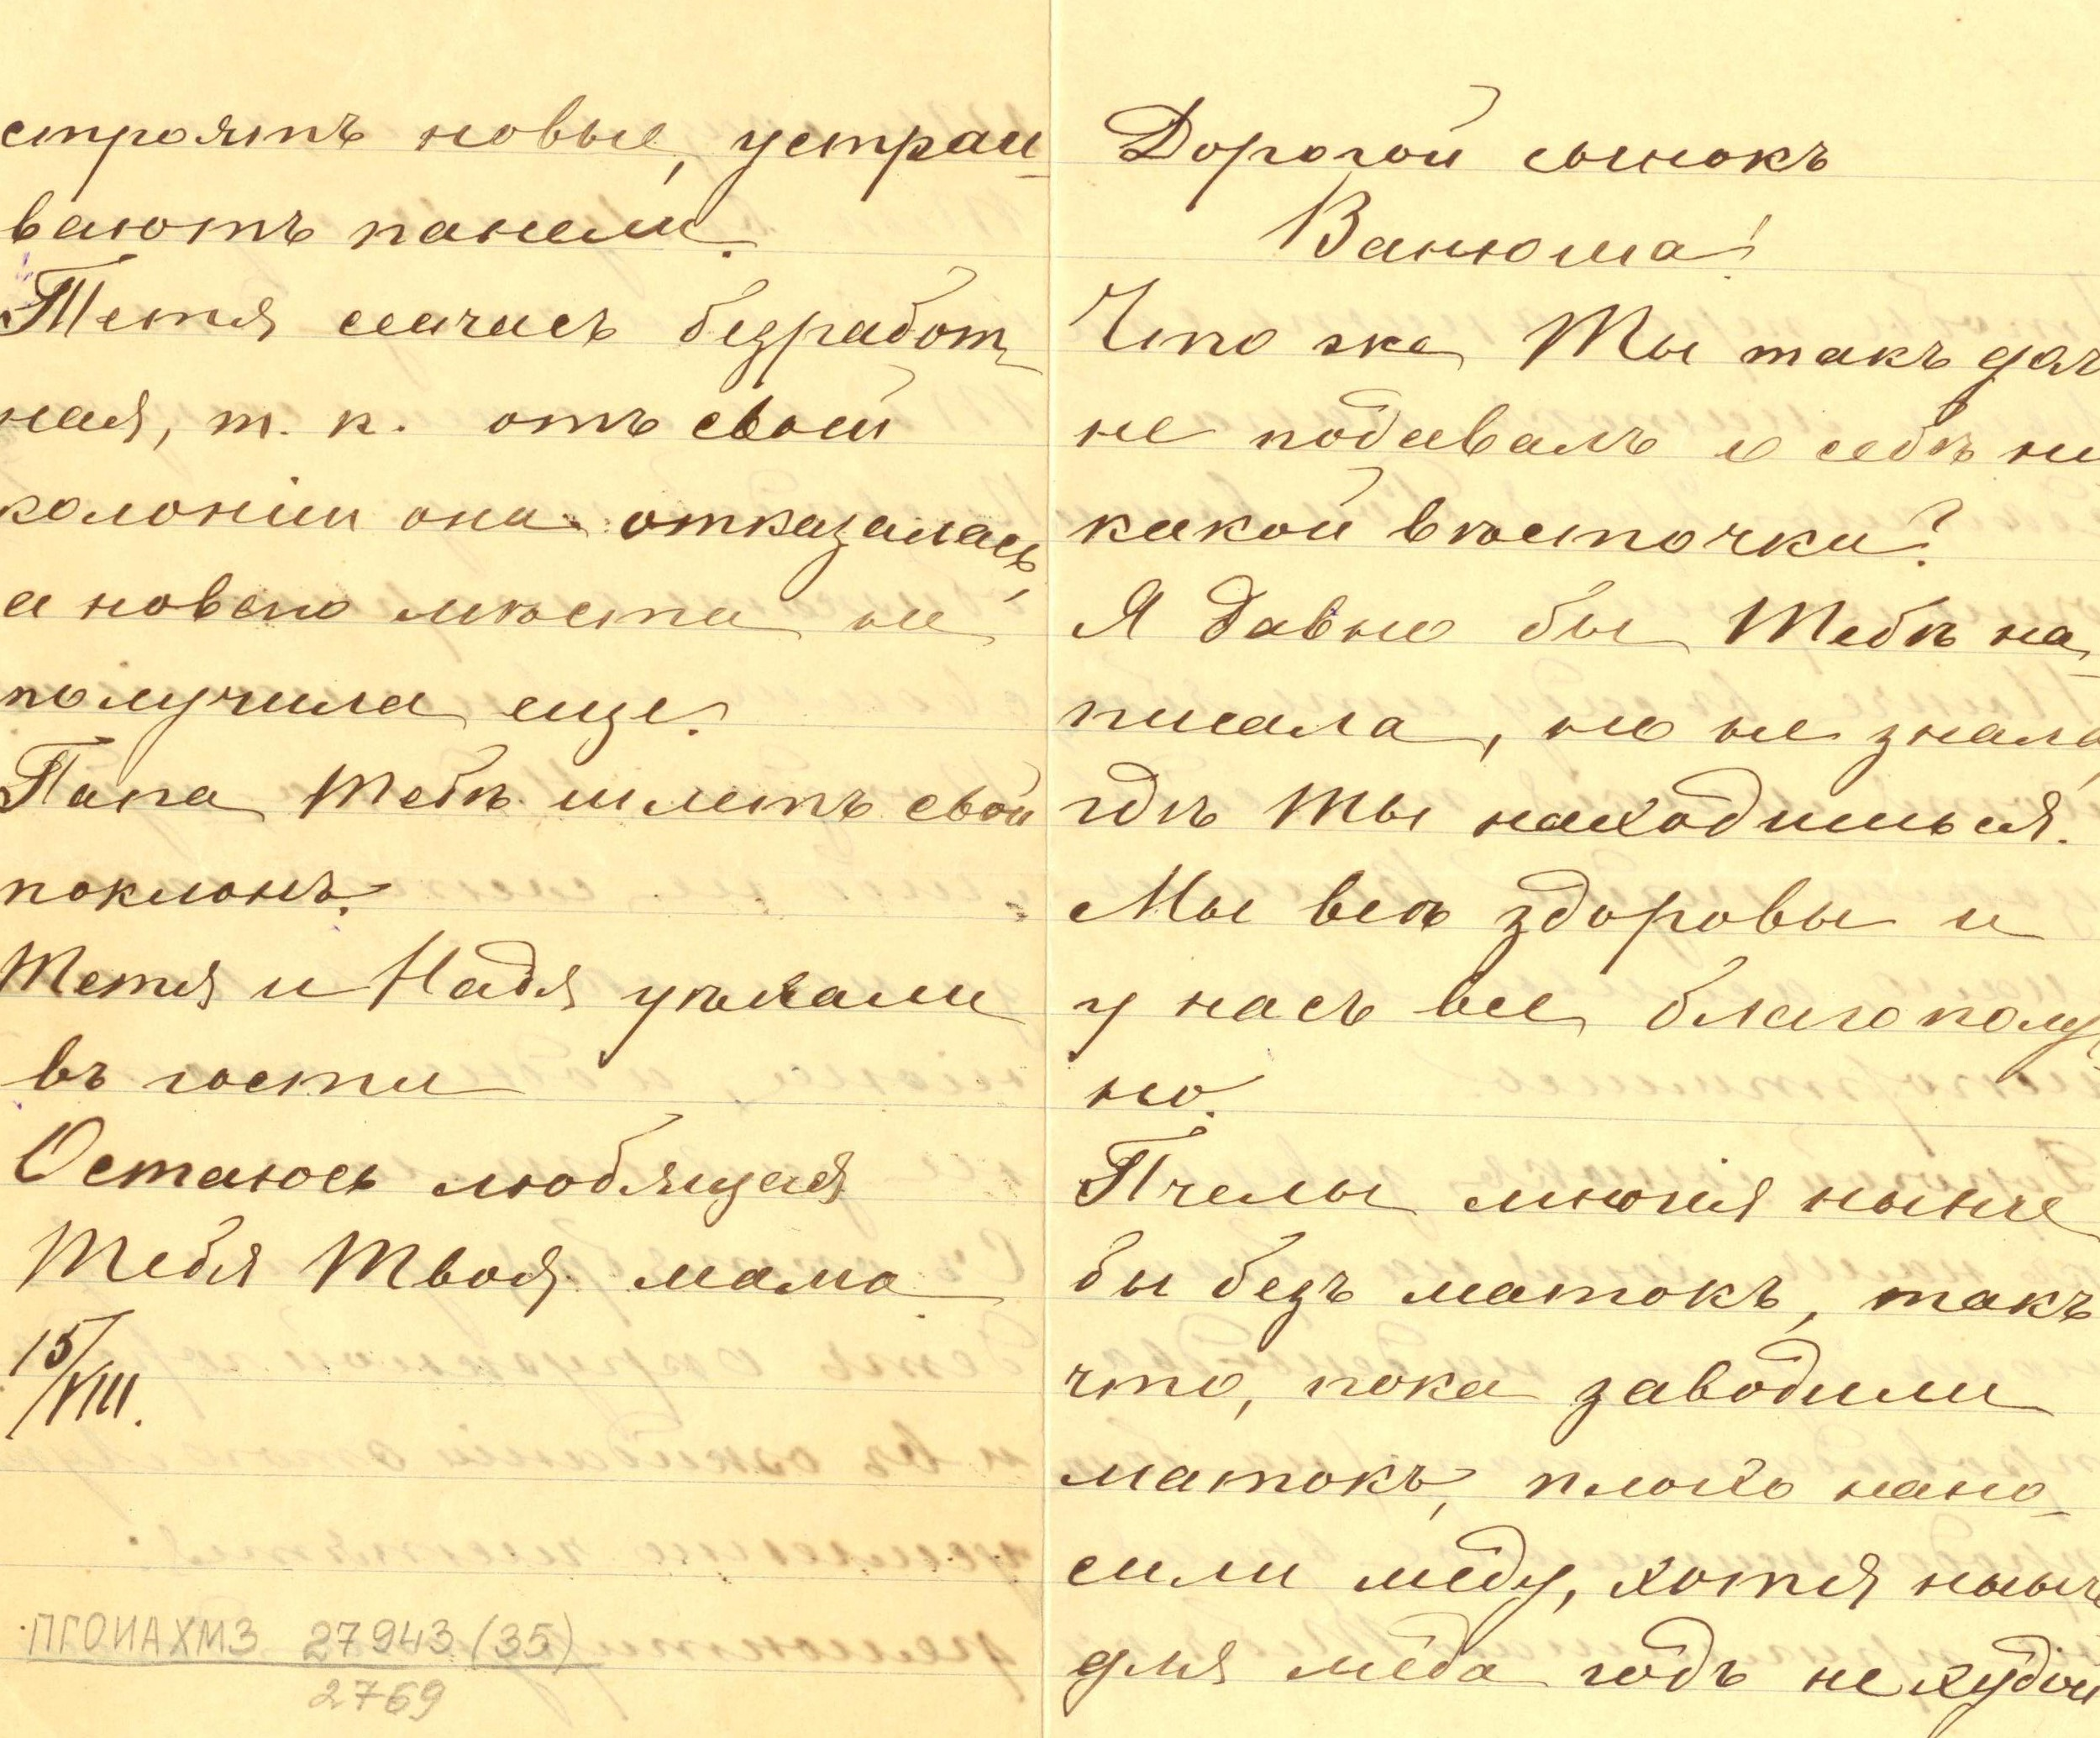 строятъ новые, устраи-
ваютъ панели.
Тетя сейчасъ безработ-
ная, т. к. отъ своей
колоніи она отказалась,
а новаго мѣста не
получила еще.
Папа Тебѣ шлетъ свой
поклонъ.
Тетя и Надя уѣхали
въ гости
Остаюсь любящая
Тебя Твоя мама
15/VIII.
ПГОИАХМЗ 27943 (35)
2769
Дорогой сынокъ
Ванюша!
Что же Ты такъ дол
не подавалъ о себѣ ни
какой вѣсточки?
Я давно бы Тебѣ на-
писала, но не знала,
гдѣ Ты находишься.
Мы всѣ здоровы и
у насъ все благополуч
но.
Пчелы многія нынче
бы безъ матокъ, такъ
что, пока заводили
матокъ, плохо нано-
сили мёду, хотя нынче
для мёда годъ не худой